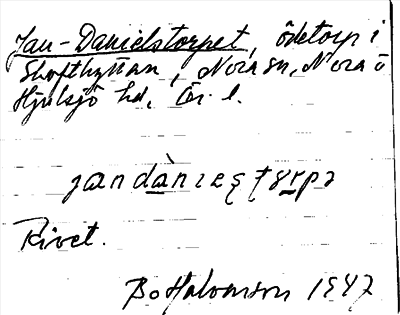 Jan-Danielstorpet, ödetorp i
Skofthyttan, Nora sn, Nora o
Hjulsjö hd, Ör. l.
jandànıeşţɤrpə
Rivet.
Bo Halvarson 1947